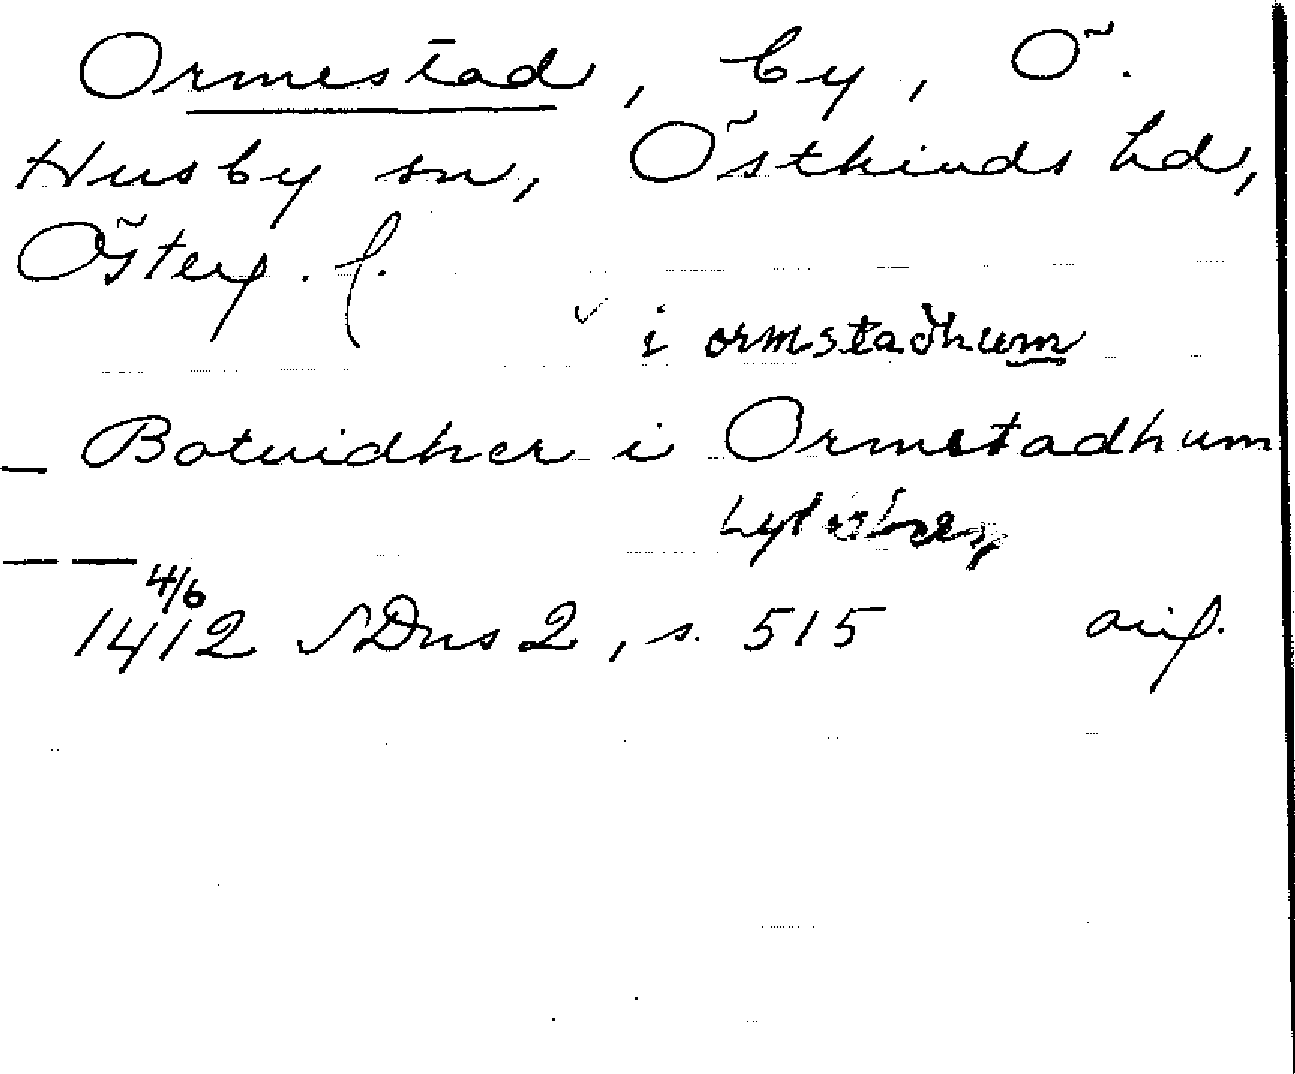 Ormestad, by, Ö.
Husby sn, Östkinds hd,
Österg. l.
i ormstadhum
– Botvidher i Ormstadhum
— —
4/6
1412 SDns 2, s. 515 orig.